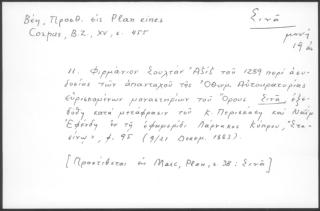 Βέη, Προσθ. εἰς Plan eines
Corpus, B.Z., XV, σ. 455
Σινᾶ
μονή
19 αἰ.
11. Φιρμάνιον Σουλτὰν Ἀζὶζ τοῦ 1289 περὶ ἀσυ-
δοσίας τῶν ἁπανταχοῦ τῆς Ὀθωμ. Αὐτοκρατορίας
εὑρισκομένων μοναστηρίων τοῦ Ὄρους Σινᾶ, ἐξε-
δόθη κατὰ μετάφρασιν τοῦ Κ. Περιστιάνη καὶ
Ἐφένδη ἐν τῇ ἐφημερίδι Λάρνακος Κύπρου,
φ. 95 (9/21 Δεκεμ. 1883).
[Προστίθεται ἐν Marc, Plan, σ. 38: Σινᾶ]